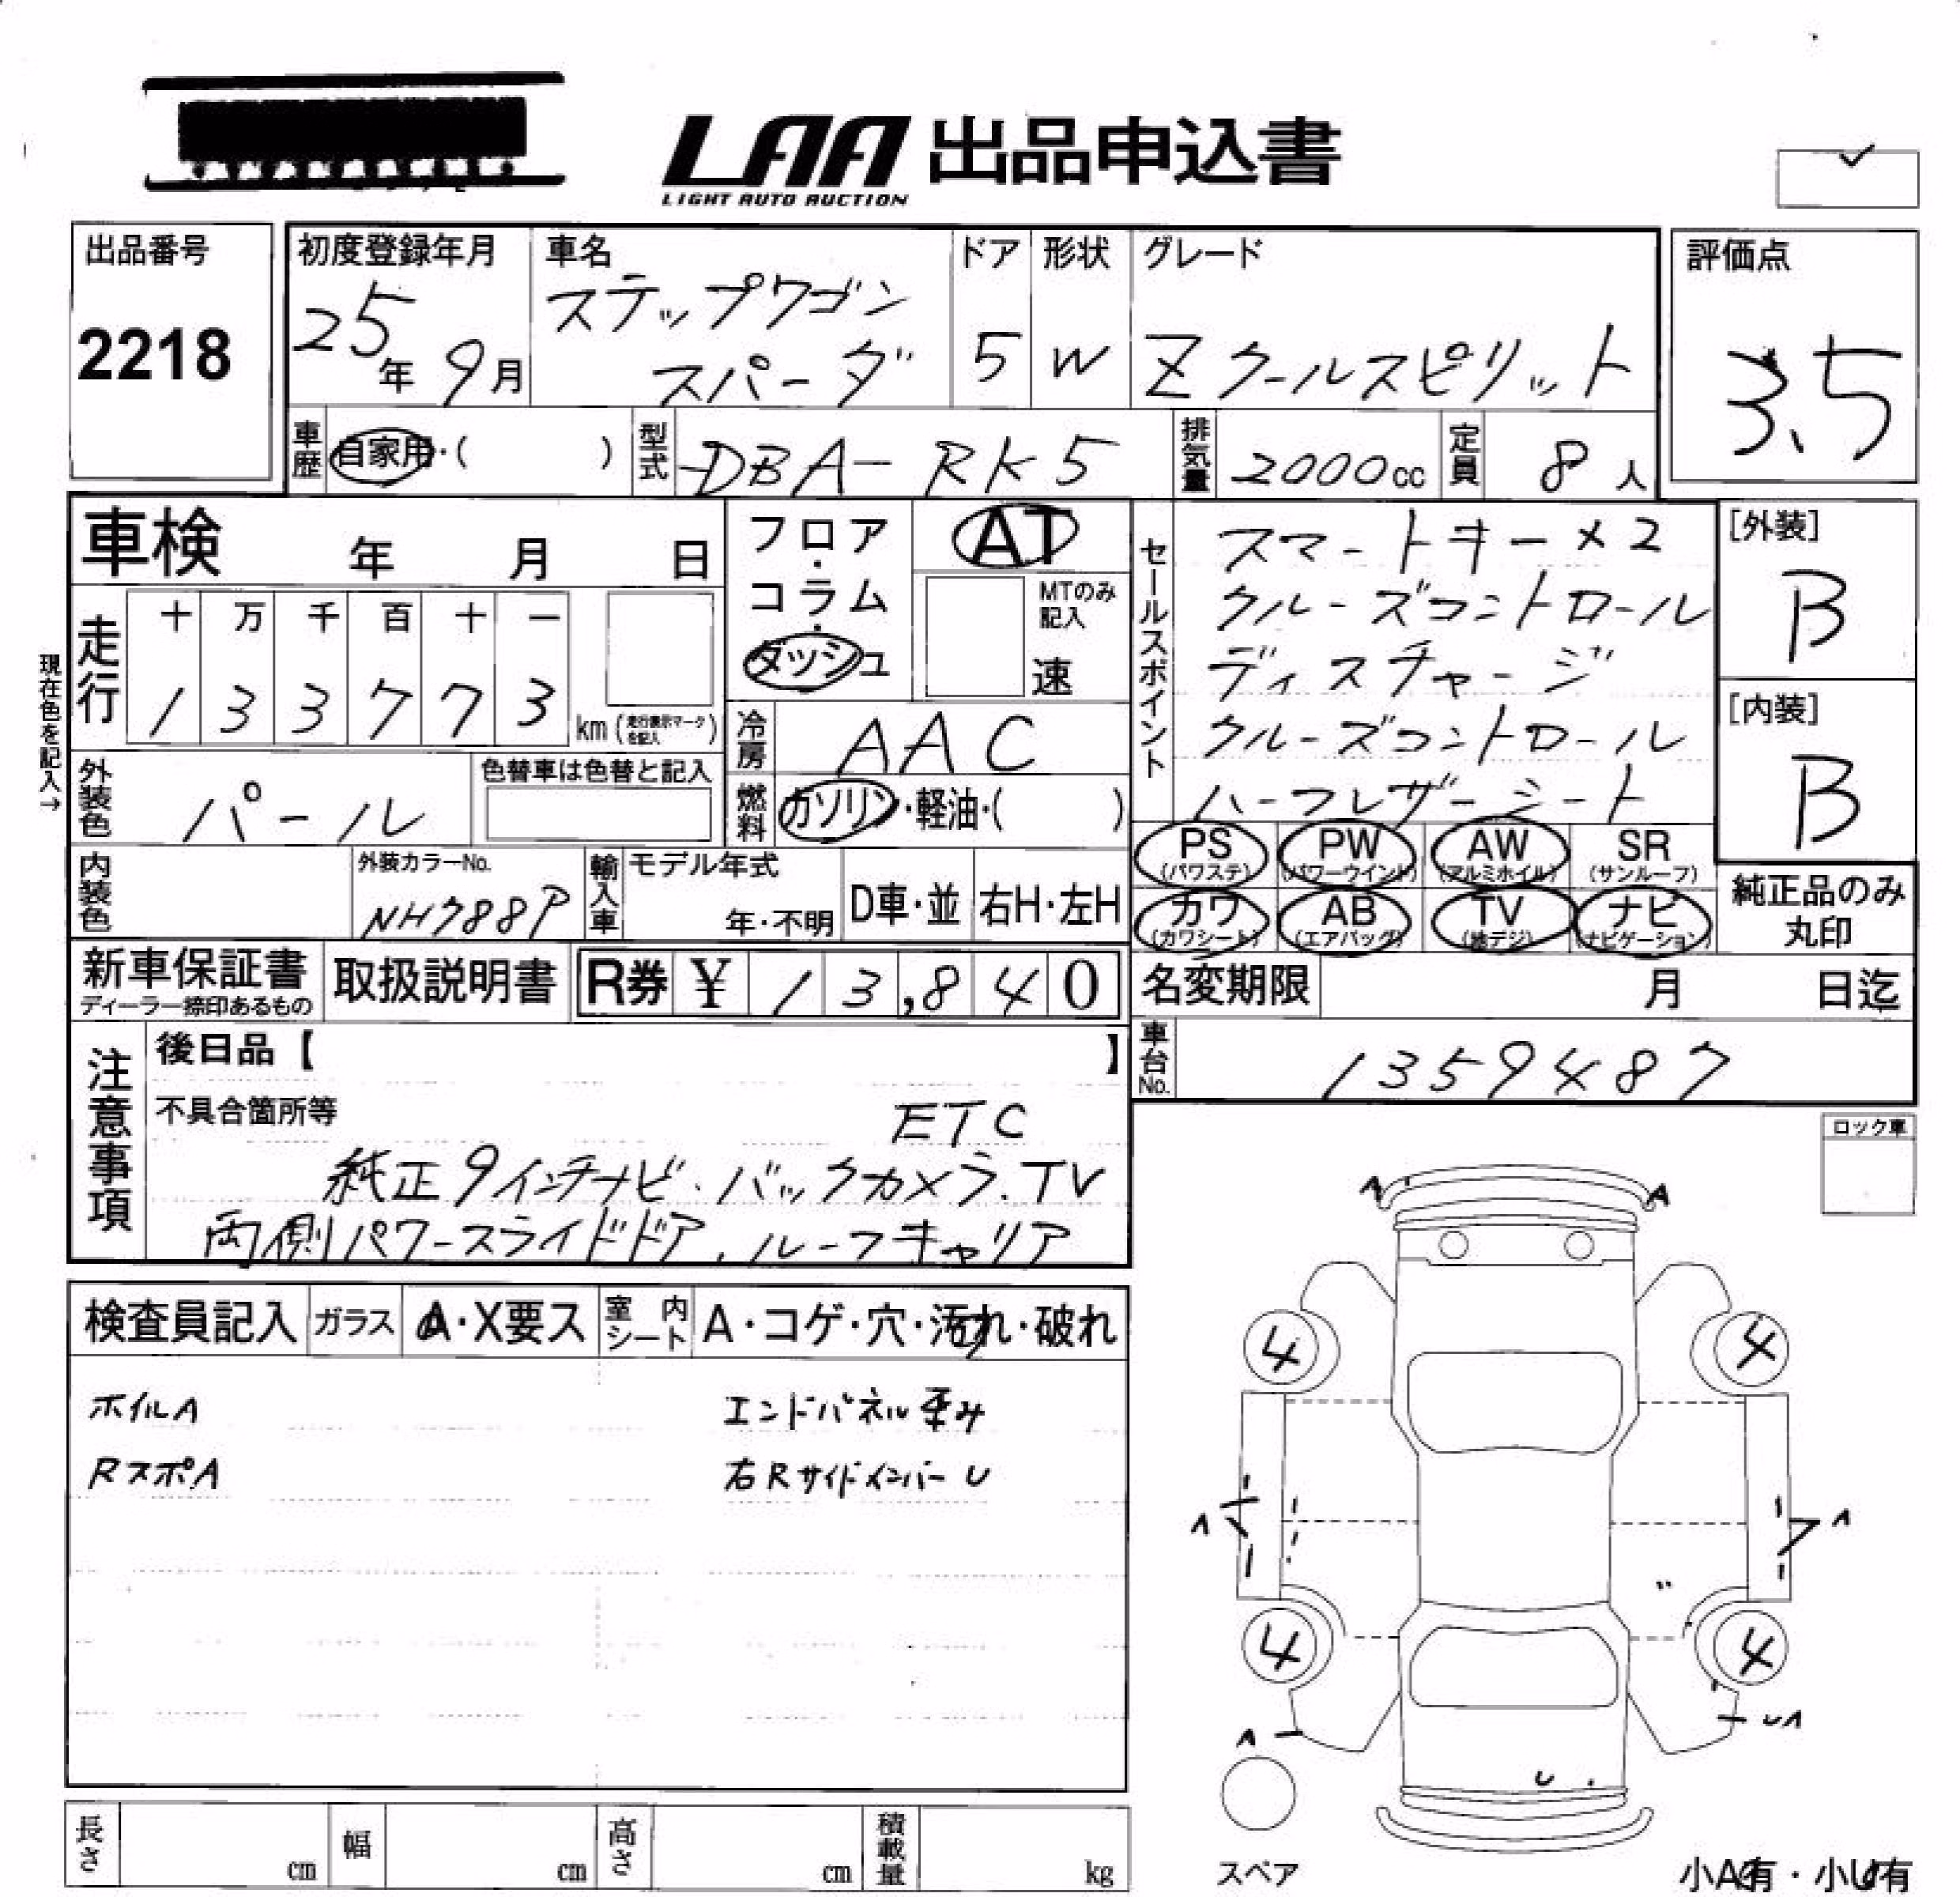 LAA 出品申込書
LIGHT AUTO AUCTION
出品番号
2218
初度登録年月
25年 9月
車名
ステップワゴン
スパーダ
ドア
5
形状
W
グレード
Zクールスピリット
評価点
3.5
車歴
自家用・( )
型式
DBA-RK5
排気量
2000cc
定員
8人
車検 年 月 日
フロア・コラム・ダッシュ
AT
MTのみ記入
速
セールスポイント
スマートキー×2
クルーズコントロール
ディスチャージ
クルーズコントロール
ハーフレザーシート
[外装]
B
[内装]
B
現在色を記入→
走行
十 万 千 百 十 一
1 3 3 7 7 3
km (走行表示マークを記入)
冷房
AAC
外装色
パール
色替車は色替と記入
燃料
ガソリン・軽油・( )
PS (パワステ)
PW (パワーウインド)
AW (アルミホイル)
SR (サンルーフ)
カワ (カワシート)
AB (エアバッグ)
TV (地デジ)
ナビ (ナビゲーション)
純正品のみ丸印
内装色
外装カラーNo.
NH788P
輸入車
モデル年式
年・不明
D車・並
右H・左H
新車保証書
ディーラー捺印あるもの
取扱説明書
R券 ¥ 13,840
名変期限 月 日迄
車台No.
1359487
注意事項
後日品【 】
不具合箇所等
ETC
純正9インチナビ.バックカメラ.TV
両側パワースライドドア.ルーフキャリア
ロック車
検査員記入
ガラス
A・X要ス
室内シート
A・コゲ・穴・汚れ・破れ
ホイルA
エンドパネル歪み
RスポA
右RサイドメンバーU
A
A
4
4
A
A
4
4
A
UA
U
スペア
長さ cm
幅 cm
高さ cm
積載量 kg
小A有・小U有